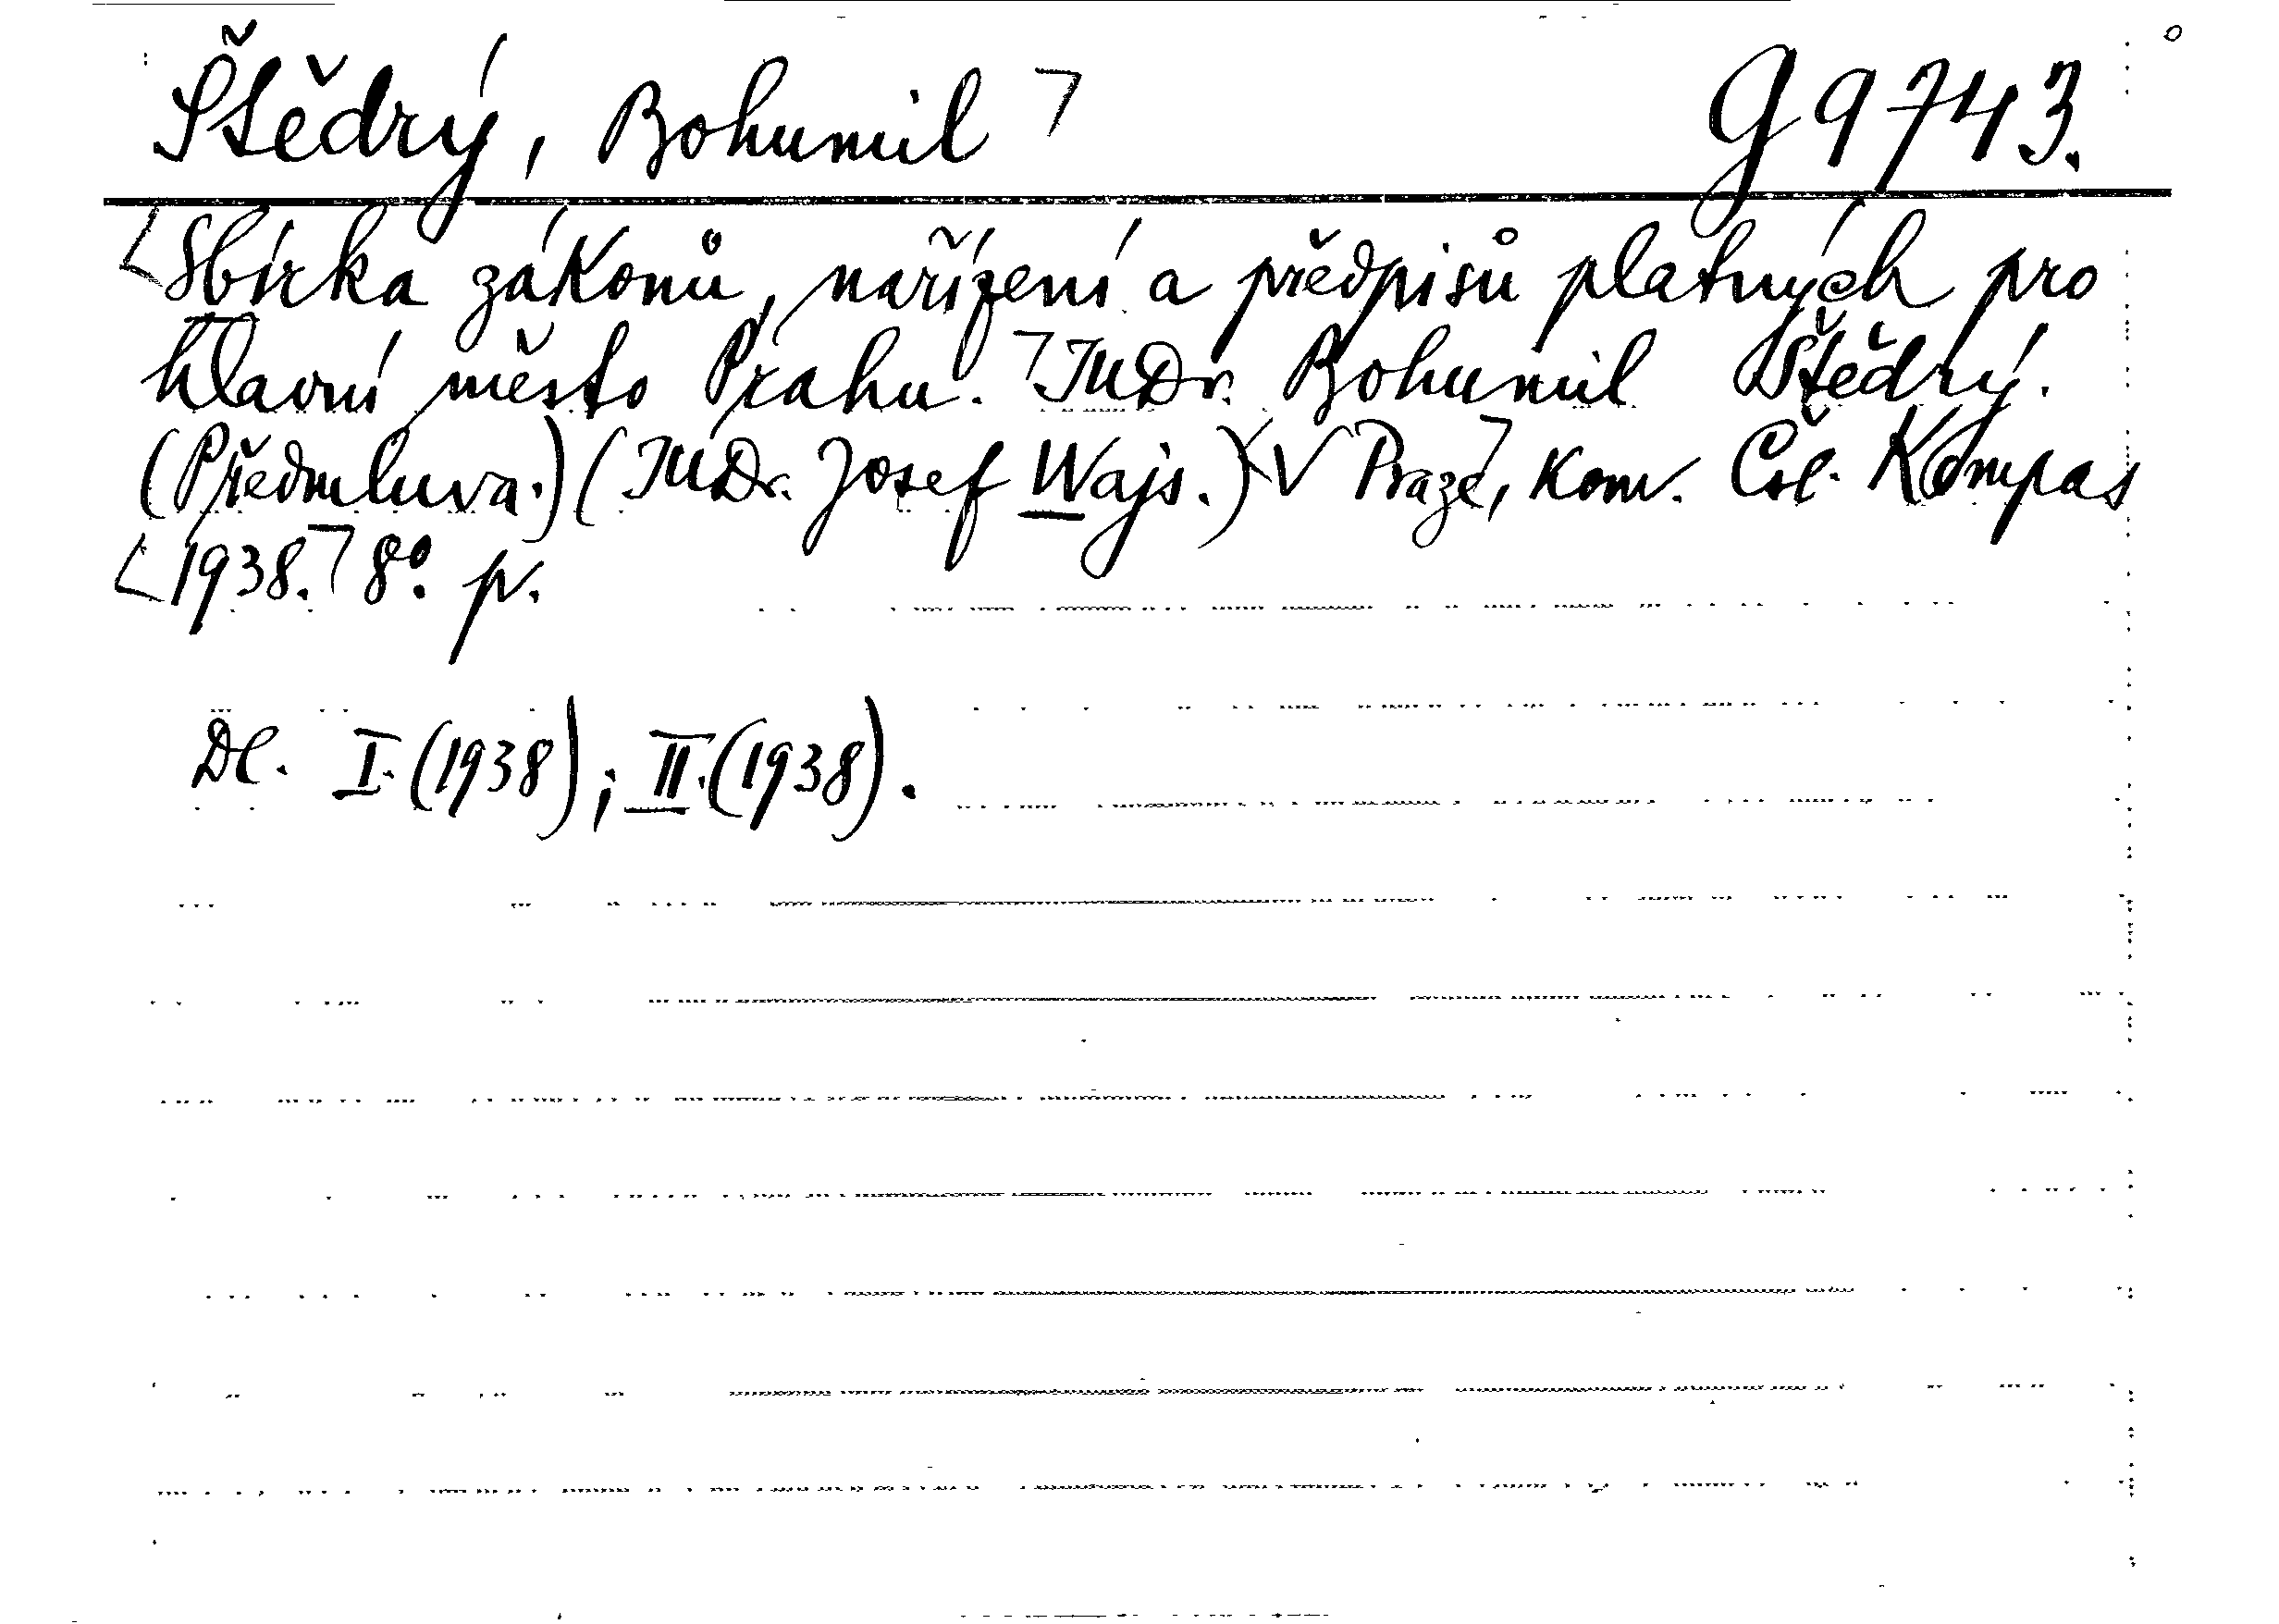 Štědrý, Bohumil G 9743.
Sbírka zákonů, nařízení a předpisů platných pro
hlavní město Prahu. JUDr. Bohumil Štědrý.
(Předmluva.) (JUDr. Josef Wajs.) V Praze, Kom. Čsl. Kompas
1938. 8°. p.
Dl. I. (1938); II. (1938).